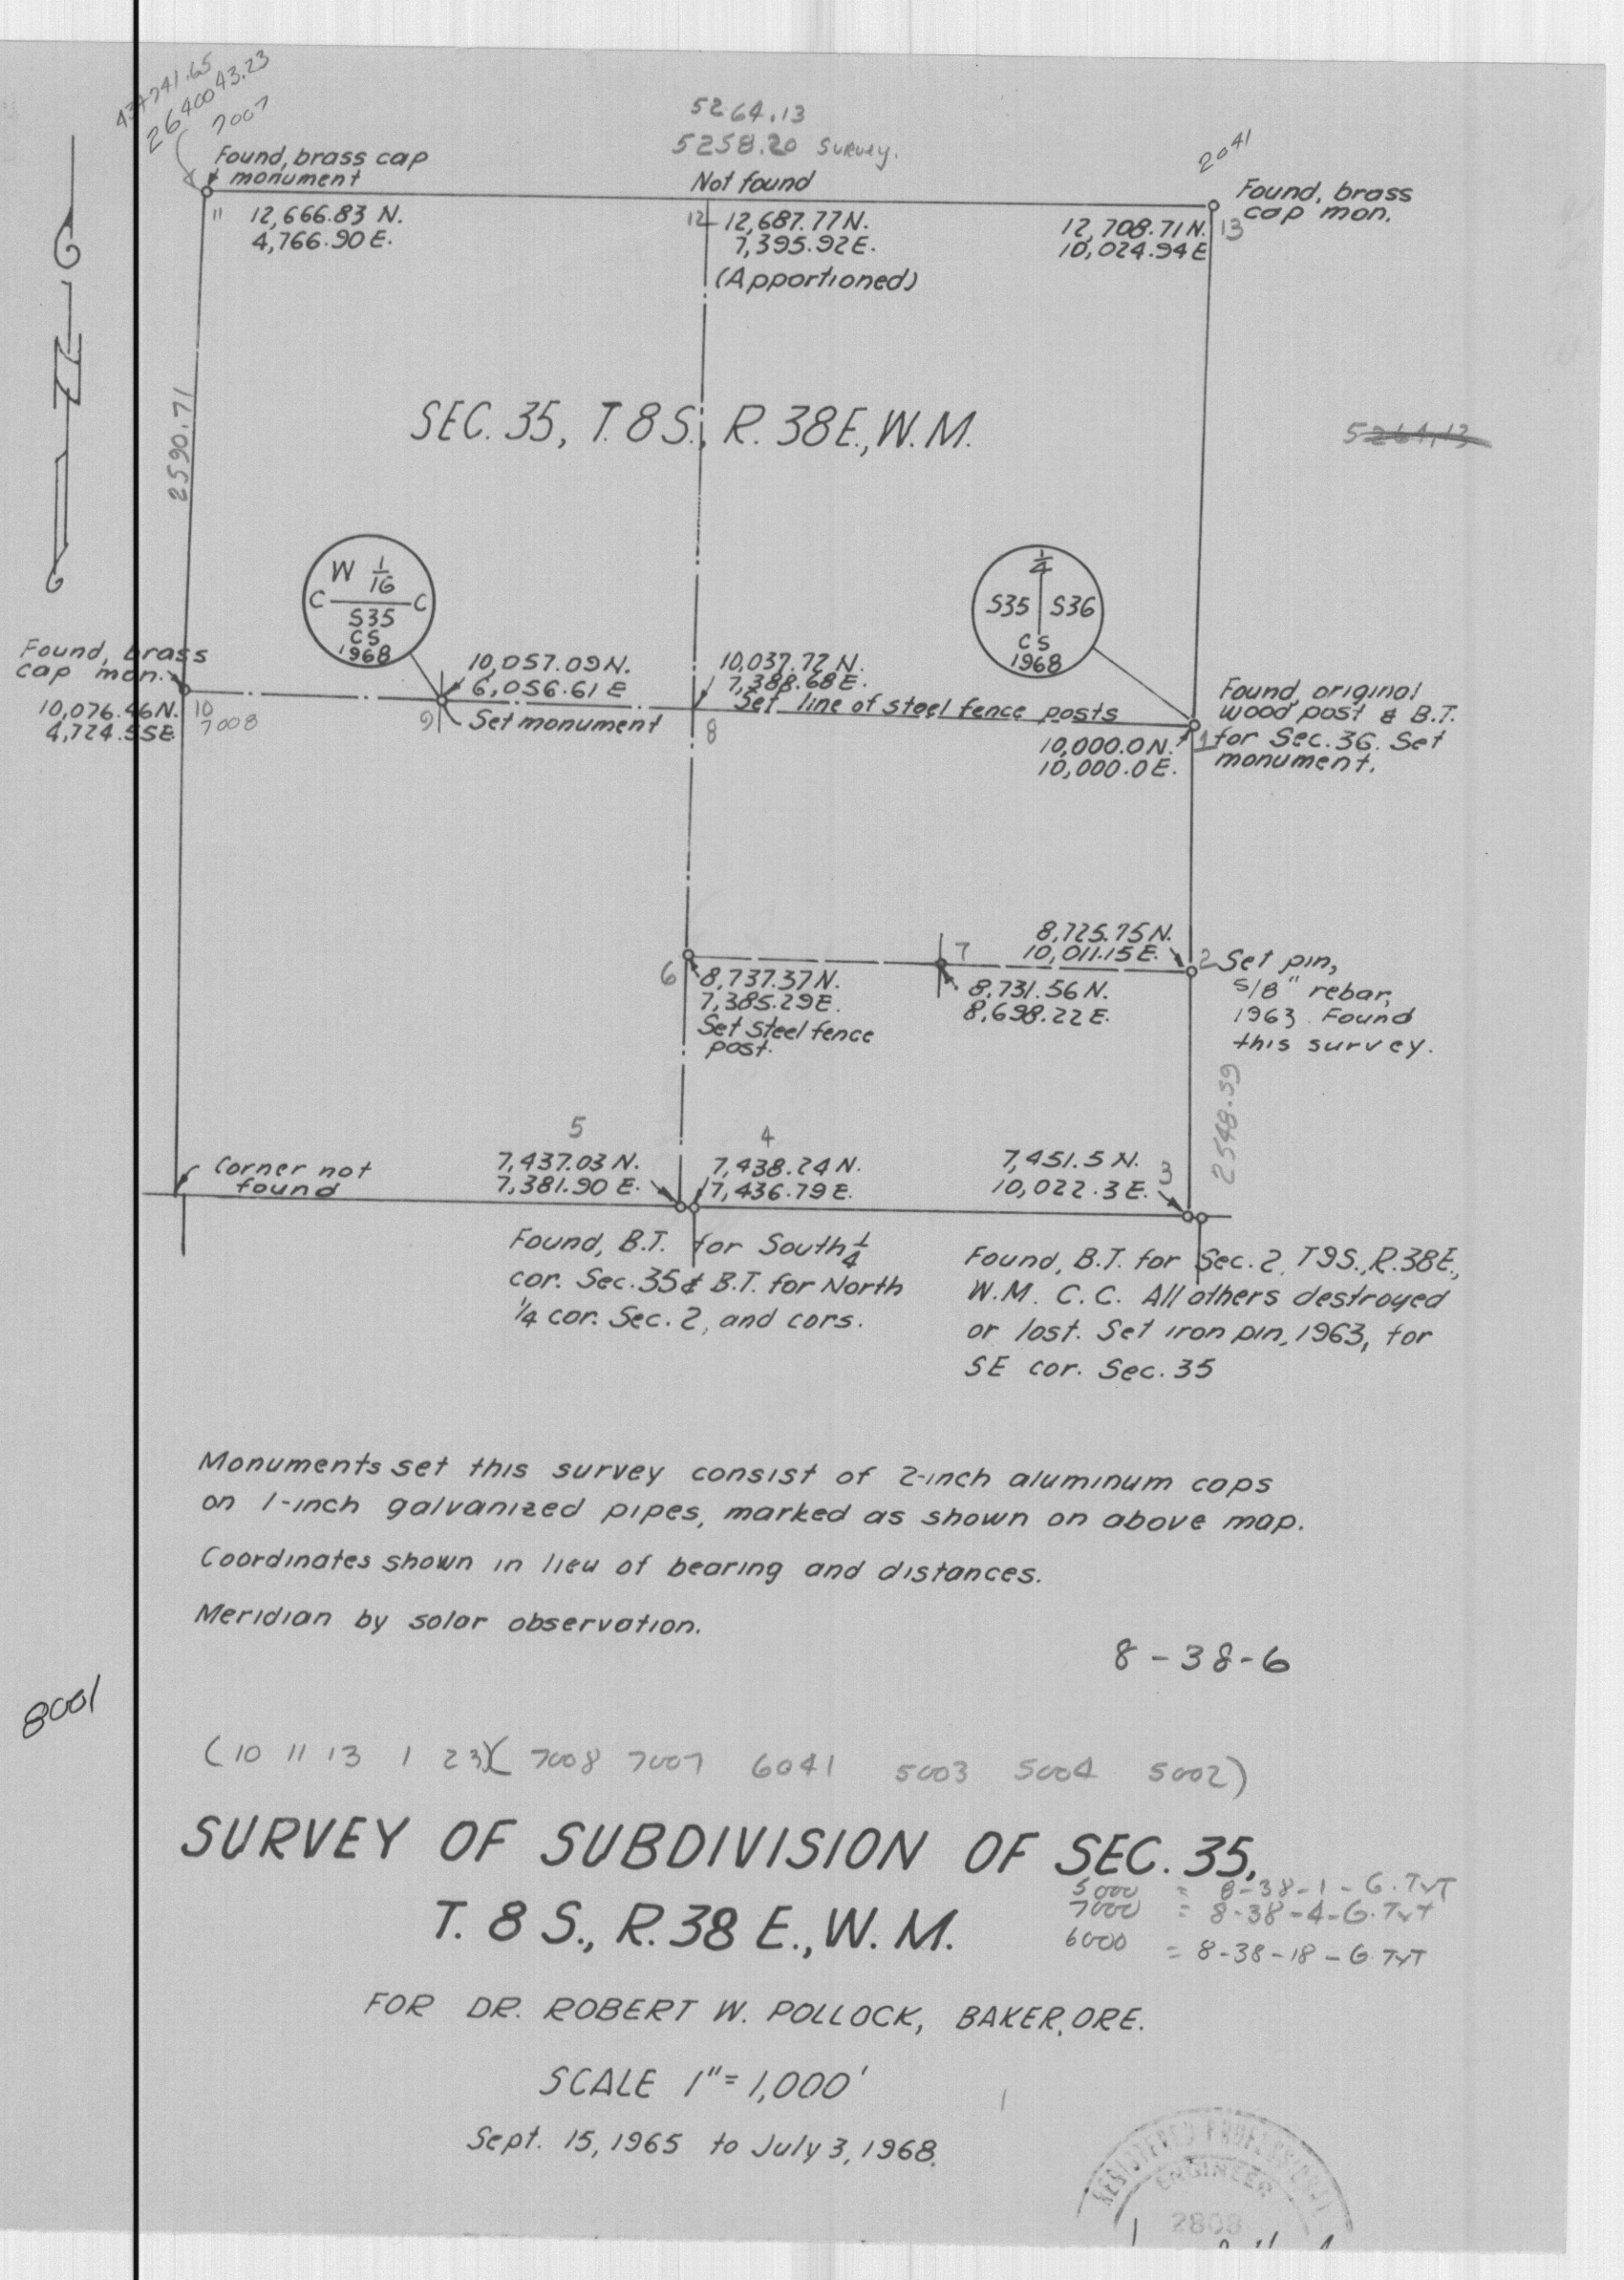 434741.65
2640043.23
7007
5264.13
5258.20 Survey.
2041
Found, brass cap
monument
Not found
Found, brass
cap mon.
11 12,666.83 N.
4,766.90 E.
12 12,687.77 N.
7,395.92 E.
(Apportioned)
12,708.71 N. 13
10,024.94 E
2590.71
SEC. 35, T. 8 S., R. 38 E., W. M.
5264.13
W 1/16
C C
S35
CS
1968
1/4
S35 S36
CS
1968
Found, brass
cap mon.
10,076.46 N. 10
4,724.55 E. 7008
10,057.09 N.
6,056.61 E
9 Set monument
10,037.72 N.
7,388.68 E.
Set line of steel fence posts
8
10,000.0 N. 1
10,000.0 E.
Found, original
wood post & B.T.
for Sec. 36. Set
monument.
8,725.75 N.
10,011.15 E. 2
Set pin,
5/8" rebar,
1963. Found
this survey.
7
8,731.56 N.
8,698.22 E.
6 8,737.37 N.
7,385.29 E.
Set Steel fence
post.
2548.59
Corner not
found
5
7,437.03 N.
7,381.90 E.
4
7,438.24 N.
7,436.79 E.
7,451.5 N. 3
10,022.3 E.
Found, B.T. for South 1/4
cor. Sec. 35 & B.T. for North
1/4 cor. Sec. 2, and cors.
Found, B.T. for Sec. 2, T9S., R.38E.,
W.M. C.C. All others destroyed
or lost. Set iron pin, 1963, for
SE cor. Sec. 35
Monuments set this survey consist of 2-inch aluminum caps
on 1-inch galvanized pipes, marked as shown on above map.
Coordinates shown in lieu of bearing and distances.
Meridian by solar observation.
8-38-6
8001
(10 11 13 1 2 3)( 7008 7007 6041 5003 5004 5002)
SURVEY OF SUBDIVISION OF SEC. 35,
T. 8 S., R. 38 E., W. M.
5000 = 8-38-1-G.TXT
7000 = 8-38-4-G.TXT
6000 = 8-38-18-G.TXT
FOR DR. ROBERT W. POLLOCK, BAKER, ORE.
SCALE 1" = 1,000'
Sept. 15, 1965 to July 3, 1968.
REGISTERED PROFESSIONAL
ENGINEER
2808